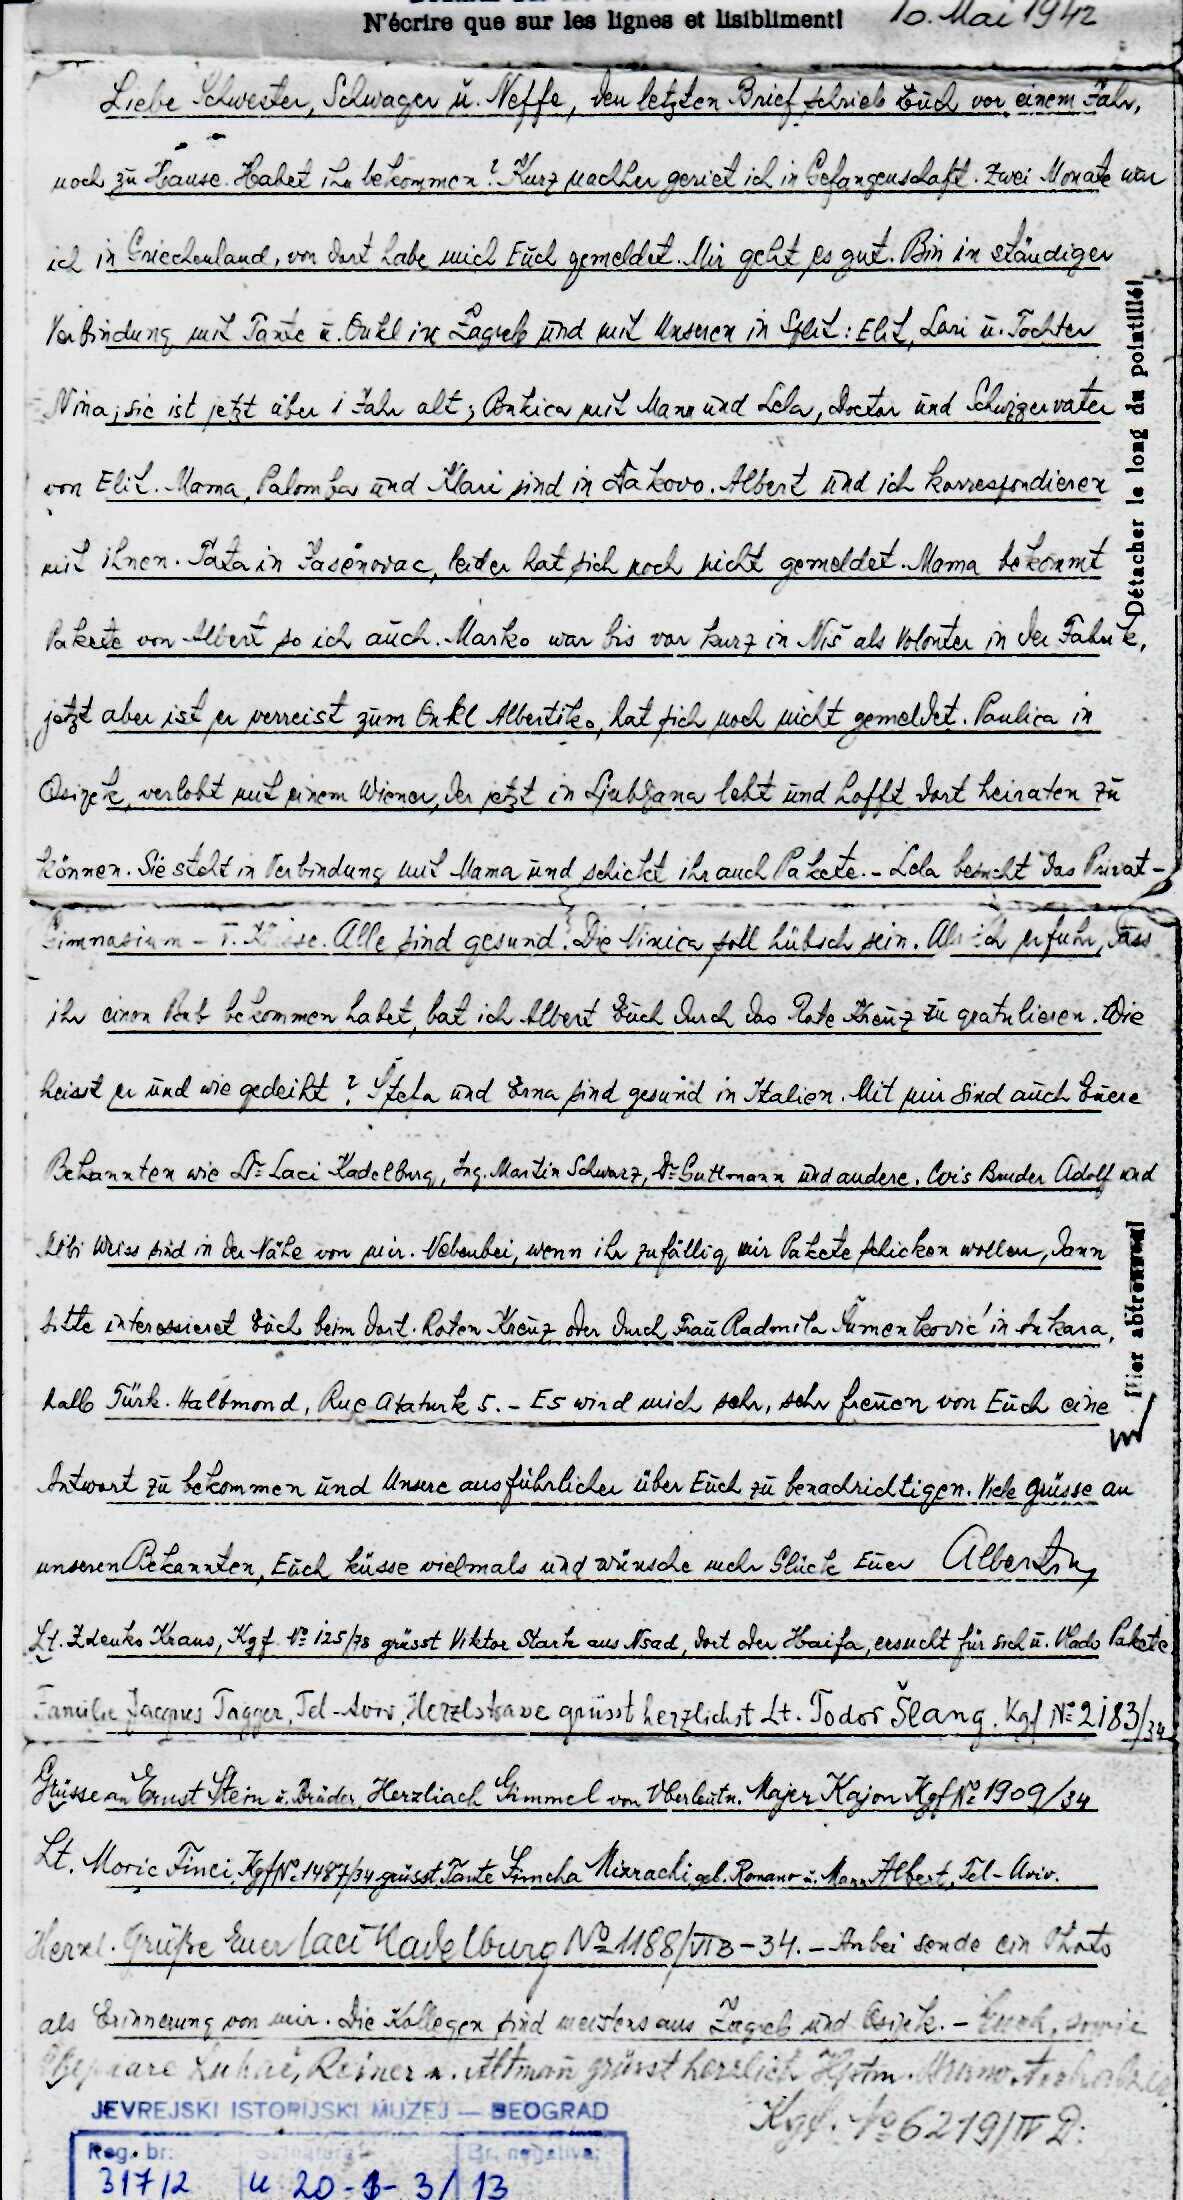 N'écrire que sur les lignes et lisibliment!
10. Mai 1942
Liebe Schwester, Schwager u. Neffe, den letzten Brief schrieb Euch vor einem Jahr,
noch zu Hause. Habet ihn bekommen? Kurz nachher geriet ich in Gefangenschaft. Zwei Monate war
ich in Griechenland, von dort habe mich Euch gemeldet. Mir geht es gut. Bin in ständiger
Verbindung mit Tante u. Onkl in Zagreb und mit Unseren in Split: Elit, Lari u. Tochter
Nina; sie ist jetzt über 1 Jahr alt; mit Mann und Lela, Doctor und Schwigervater
von Elit. Mama, Palomba und Klari sind in Đakovo. Albert und ich korrespondieren
mit ihnen. Tata in Jasenovac, leider hat sich noch nicht gemeldet. Mama bekommt
Pakete von Albert so ich auch. Marko war bis vor kurz in Niš als Volonter in der Fabrik,
jetzt aber ist er verreist zum Onkl Albertiko, hat sich noch nicht gemeldet. Paulica in
Osijek, verlobt mit einem Wiener, der jetzt in Ljubljana lebt und hofft dort heiraten zu
können. Sie steht in Verbindung mit Mama und schickt ihr auch Pakete. - Lela besucht das Privat-
Gimnasium - I. Klasse. Alle sind gesund. Die Ninica soll hübsch sein. Als ich erfuhr, dass
ihr einen Bub bekommen habet, bat ich Albert Euch durch das Rote Kreuz zu gratulieren. Wie
heisst er und wie gedeiht? Štefa und Erna sind gesund in Italien. Mit mir sind auch Euere
Bekannten wie Dr Laci Kadelburg, Ing. Martin Schwarz, Dr Guttmann und andere. Bruder Adolf und
Weiss sind in der Nähe von mir. Nebenbei, wenn ihr zufällig mir Pakete schicken wollen, dann
bitte interessieret Euch beim dort. Roten Kreuz oder durch Frau Radmila in Ankara,
halb Türk. Halbmond, Rue Ataturk 5. - Es wird mich sehr, sehr freuen von Euch eine
Antwort zu bekommen und Unsere ausführlicher über Euch zu benachrichtigen. Viele Grüsse an
unseren Bekannten, Euch küsse vielmals und wünsche mehr Glück Euer Albert
Lt. Zdenko Kraus, Kgf No 125/78 grüsst Viktor Stark aus Nsad, dort oder Haifa, ersucht für sich u. Vlado Pakete
Familie Jacques Tagger, Tel-Aviv, grüsst herzlichst Lt. Todor Šlang. Kgf No 2183/34
Grüsse an Ernst Stein u. Brüder, Herzliach Gimmel von Oberleutn. Majer Kajon Kgf No 1909/34
Lt. Moric Finci, Kgf No 1487/34 grüsst Tante Simcha Mizrachi geb. Romano u. Mann Albert, Tel-Aviv.
Herzl. Grüße Euer Laci Kadelburg No 1188/VI B-34. - Anbei sende ein Photo
als Erinnerung von mir. Die Kollegen sind meistens aus Zagreb und Osijek. - Euch, sowie
Ehepaare Reiner u. Altman grüsst herzlich
Kgf. No 6219/IV D.
Détacher le long du pointillé!
Hier abtrennen!
JEVREJSKI ISTORIJSKI MUZEJ — BEOGRAD
Reg. br: Signatura: Br. negativa:
31712 13